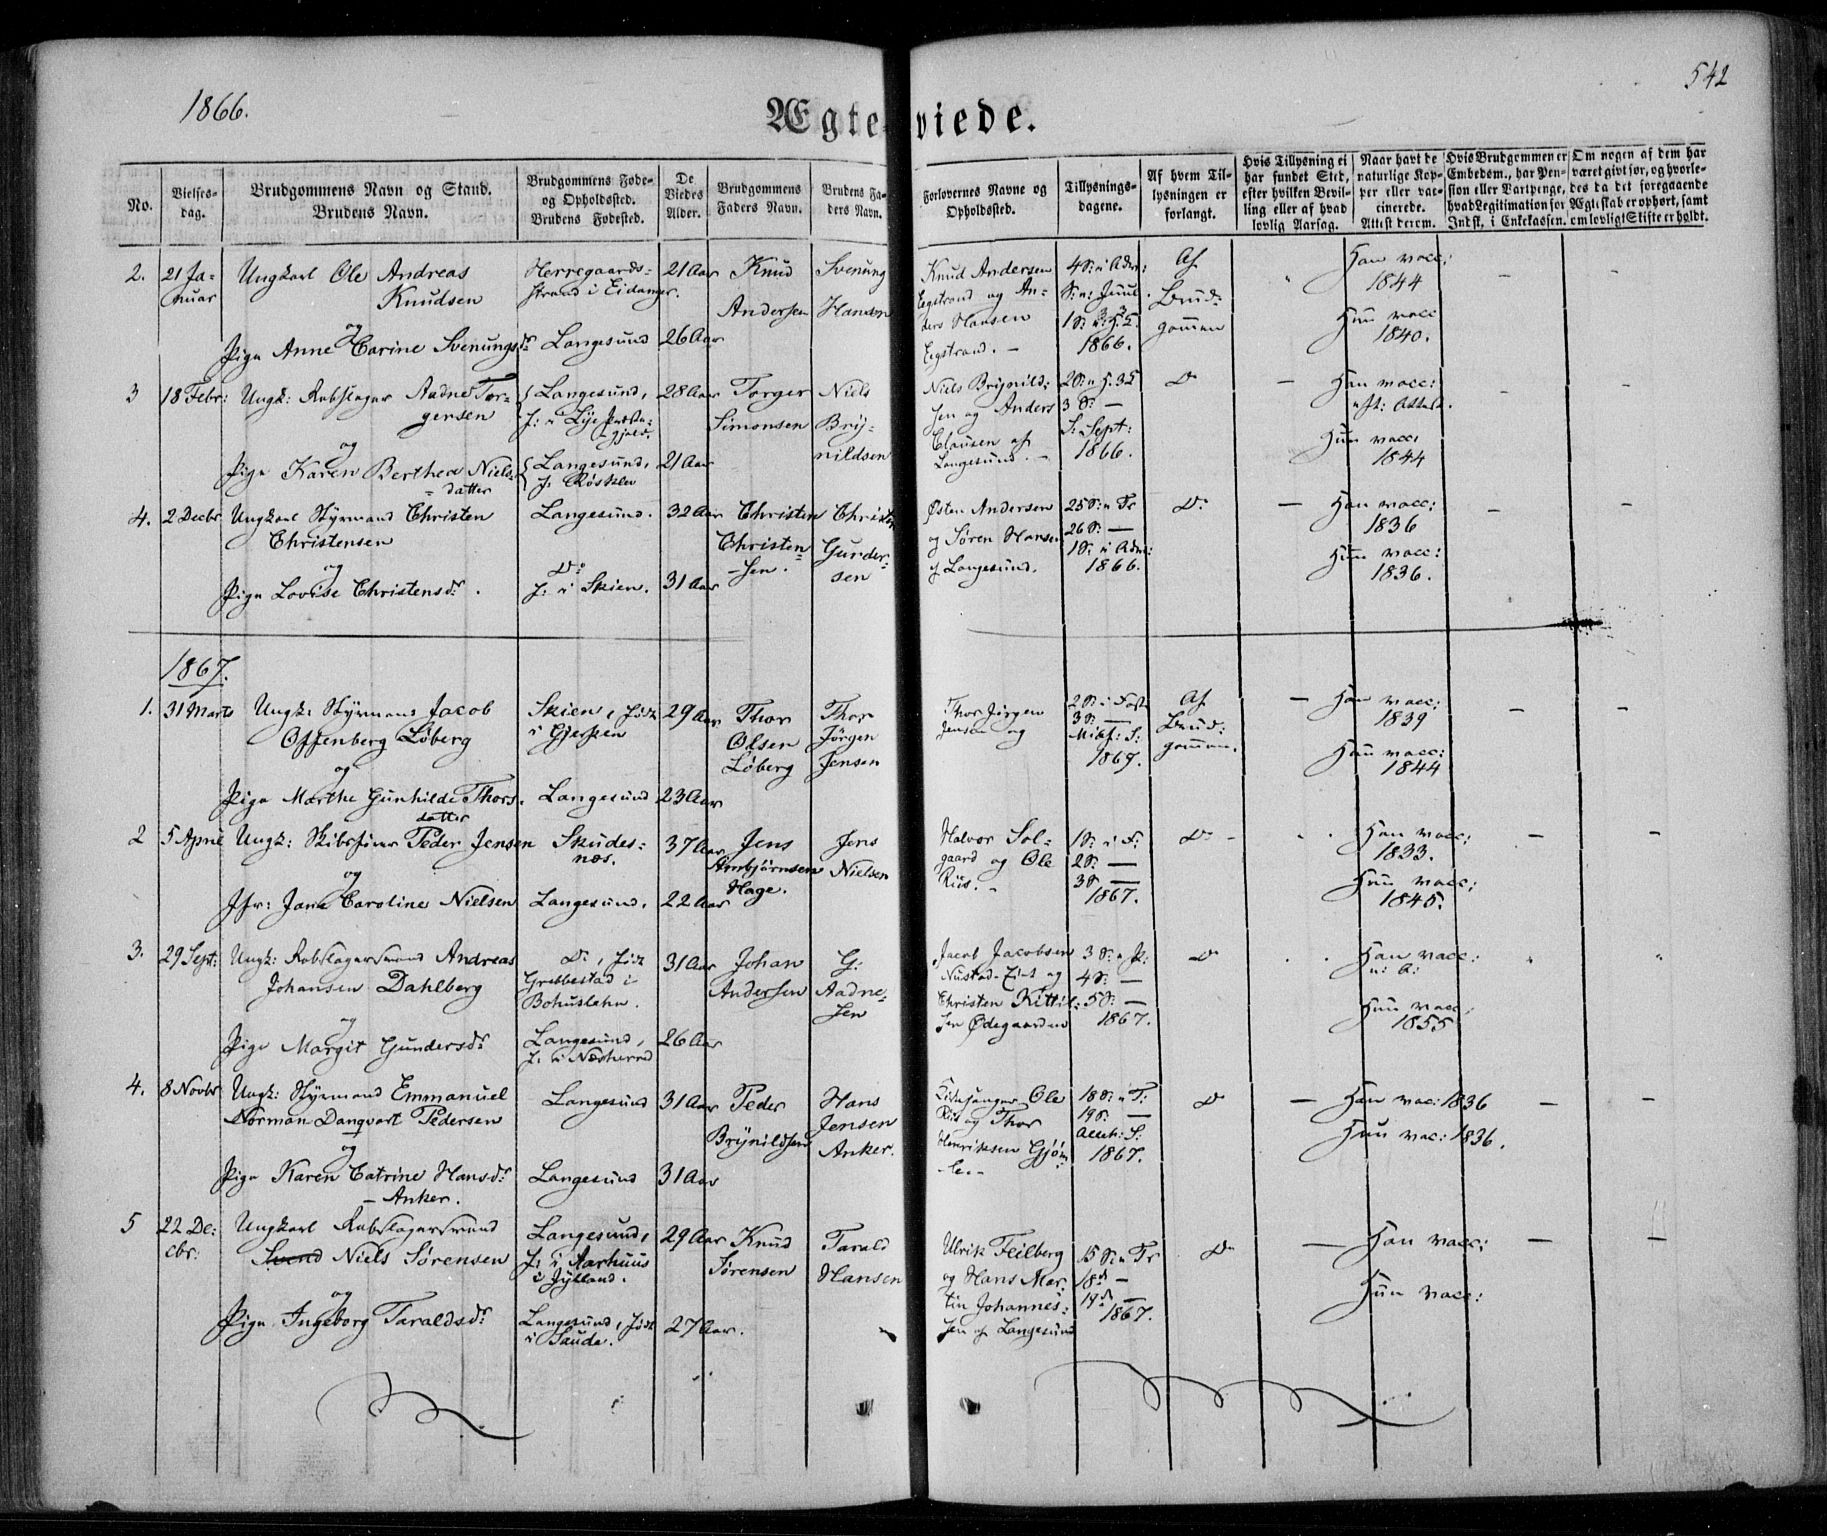 1866.
542
Ægteviede.
No.
Vielses-
dag.
Brudgommens Navn og Stand.
Brudens Navn.
Brudgommens Føde-
og Opholdssted.
Brudens Fødested.
De
Viedes
Alder.
Brudgommens
Faders Navn.
Brudens Fa-
ders Navn.
Forlovernes Navne og
Opholdssted.
Tillysnings-
dagene.
Af hvem Til-
lysningen er
forlangt.
Hvis Tillysning ei
har fundet Sted,
efter hvilken Bevil-
ling eller af hvad
lovlig Aarsag.
Naar havt de
naturlige Kop-
per eller vac-
cinerede.
Attest derom.
Hvis Brudgommen er
Embedsm., har Pen-
sion eller Vartpenge,
hvad Legitimation for
Indsk. i Enkekassen.
Om nogen af dem har
været givt før, og hvorle-
des da det foregaaende
Ægteskab er ophørt, samt
om lovligt Skifte er holdt.
2.
21 Ja-
nuar
Ungkarl Ole Andreas
Knudsen
og
Pige Anne Carine Svenungsdr
Herregaards-
strand i Eidanger.
Langesund
21 Aar
26 Aar
Knud
Andersen
Svenung
Hansen
Knud Andersen
Egstrand og An-
ders Hansen
Egstrand. —
4 S: i Adv:
S: n: Juul.
1866.
Af
Brud-
gommen
Han vacc:
1844
Hun vacc
1840.
3
18 Febr:
Ungk: Rebslager Aadne Tor-
gersen
og
Pige Karen Berthea Niels-
datter
Langesund,
Langesund,
28 Aar
21 Aar
Torger
Simonsen
Niels
Bryn-
nildsen
Niels Brynild-
sen og Anders
Clausen af
Langesund. —
3 S: —
S: Sept:
1866.
Do
Han vacc:
Attest.
Hun vacc:
1844
4.
2 Decbr
Ungkarl Styrmand Christen
Christensen
og
Pige Lovise Christensdr.
Langesund.
Do
f: i Skien.
32 Aar
31 Aar
Christen
Christen-
sen.
Christen
Gunder-
sen
Østen Andersen
og Søren Hansen
af Langesund.
25 S: n Tr
26 S: —
1 S: i Adv:
1866.
Do
Han vacc:
1836
Hun vacc:
1836.
1867.
1.
31 Marts
Ungk: Styrmand Jacob
Offenberg Löberg
og
Pige Marthe Gunhilde Thors-
datter
Skien, født
i Gjerpen
Langesund
29 Aar
23 Aar
Thor
Olsen
Löberg
Thor
Jörgen
Jensen
Thor Jörgen
Jensen og
2 S: i Fast
3 S: —
1867.
Af
Brud-
gommen.
Han vacc:
1839
Hun vacc:
1844
2
5 April
Ungk: Skibsfører Peder Jensen
og
Jfr: Jane Caroline Nielsen
Skudes-
næs.
Langesund,
37 Aar
22 Aar
Jens
Arnbjörnsen
Hage.
Jens
Nielsen
Halvor Sol-
gaard og Ole
Riis. -
1 S: i F:
2 S: —
3 S —
1867.
Do
Han vacc:
1833.
Hun vacc:
1845.
3.
29 Sept:
Ungk: Rebslagersvend Andreas
Johansen Dahlberg
og
Pige Margit Gundersdr
Do, født
Grebbestad i
Bohuslehn.
Langesund,
f: i Næsherred
31 Aar
26 Aar
Johan
Andersen
G:
Aadne-
sen
Jacob Jacobsen
Christen Kittil-
sen Ødegaarden
4 S: —
5 S: —
1867.
Do
Han vacc:
Hun vacc:
1855
4.
8 Novbr
Ungk: Styrmand Emmanuel
Norman Danqvart Pedersen
og
Pige Karen Catrine Hansdr
— Anker.
Langesund
Langesund
31 Aar
31 Aar
Peder
Brynildsen
Hans
Jensen
Anker.
Kirkesanger Ole
Riis og Thor
Henriksen
18 S: n T:
19 S: —
Alleh: S:
1867.
Do
Han vac: 1836
Hun vac: 1836.
5
22 De-
cbr:
Ungkarl Rebslagersvend
Niels Sørensen
og
Pige Ingeborg Taraldsdr
Langesund,
f: i Aarhuus
i Jylland.
Langesund, født
i Saude.
29 Aar
27 Aar.
Knud
Sørensen
Tarald
Hansen
Ulrik Feilberg
og Hans Mar-
tin Johannes-
sen af Langesund
15 S: n Tr
1867.
Do
Han vacc:
Hun vacc: